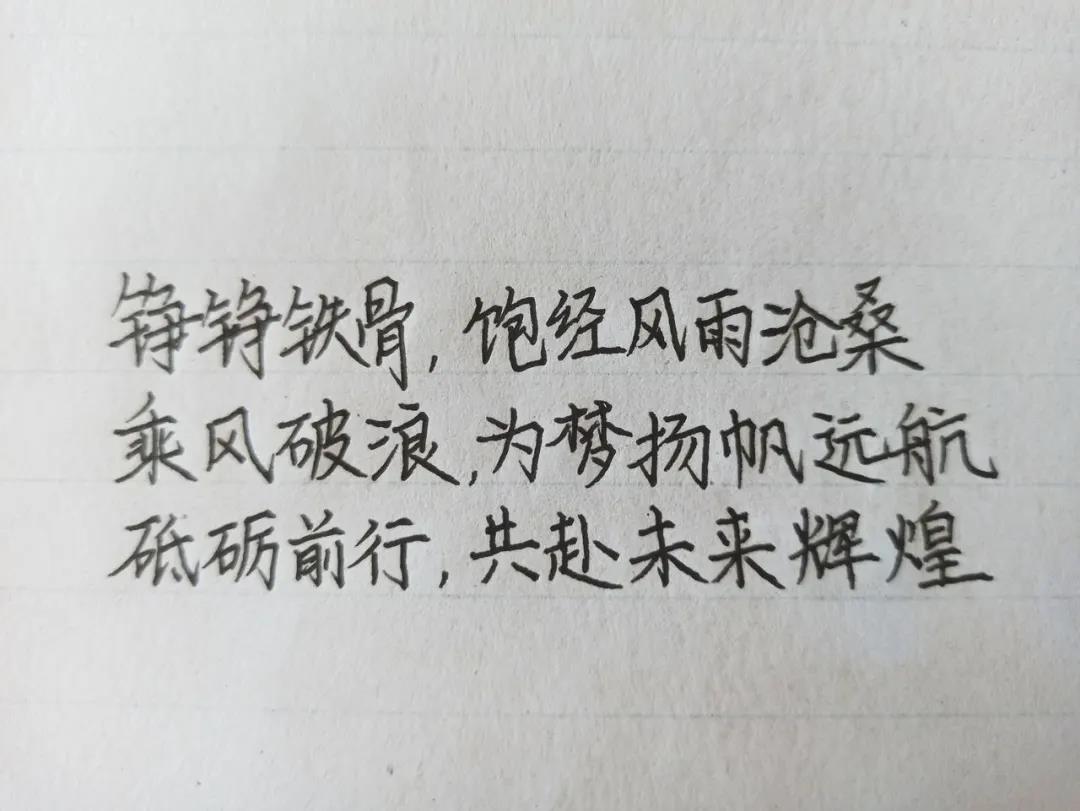 铮铮铁骨,饱经风雨沧桑
乘风破浪,为梦扬帆远航
砥砺前行,共赴未来辉煌